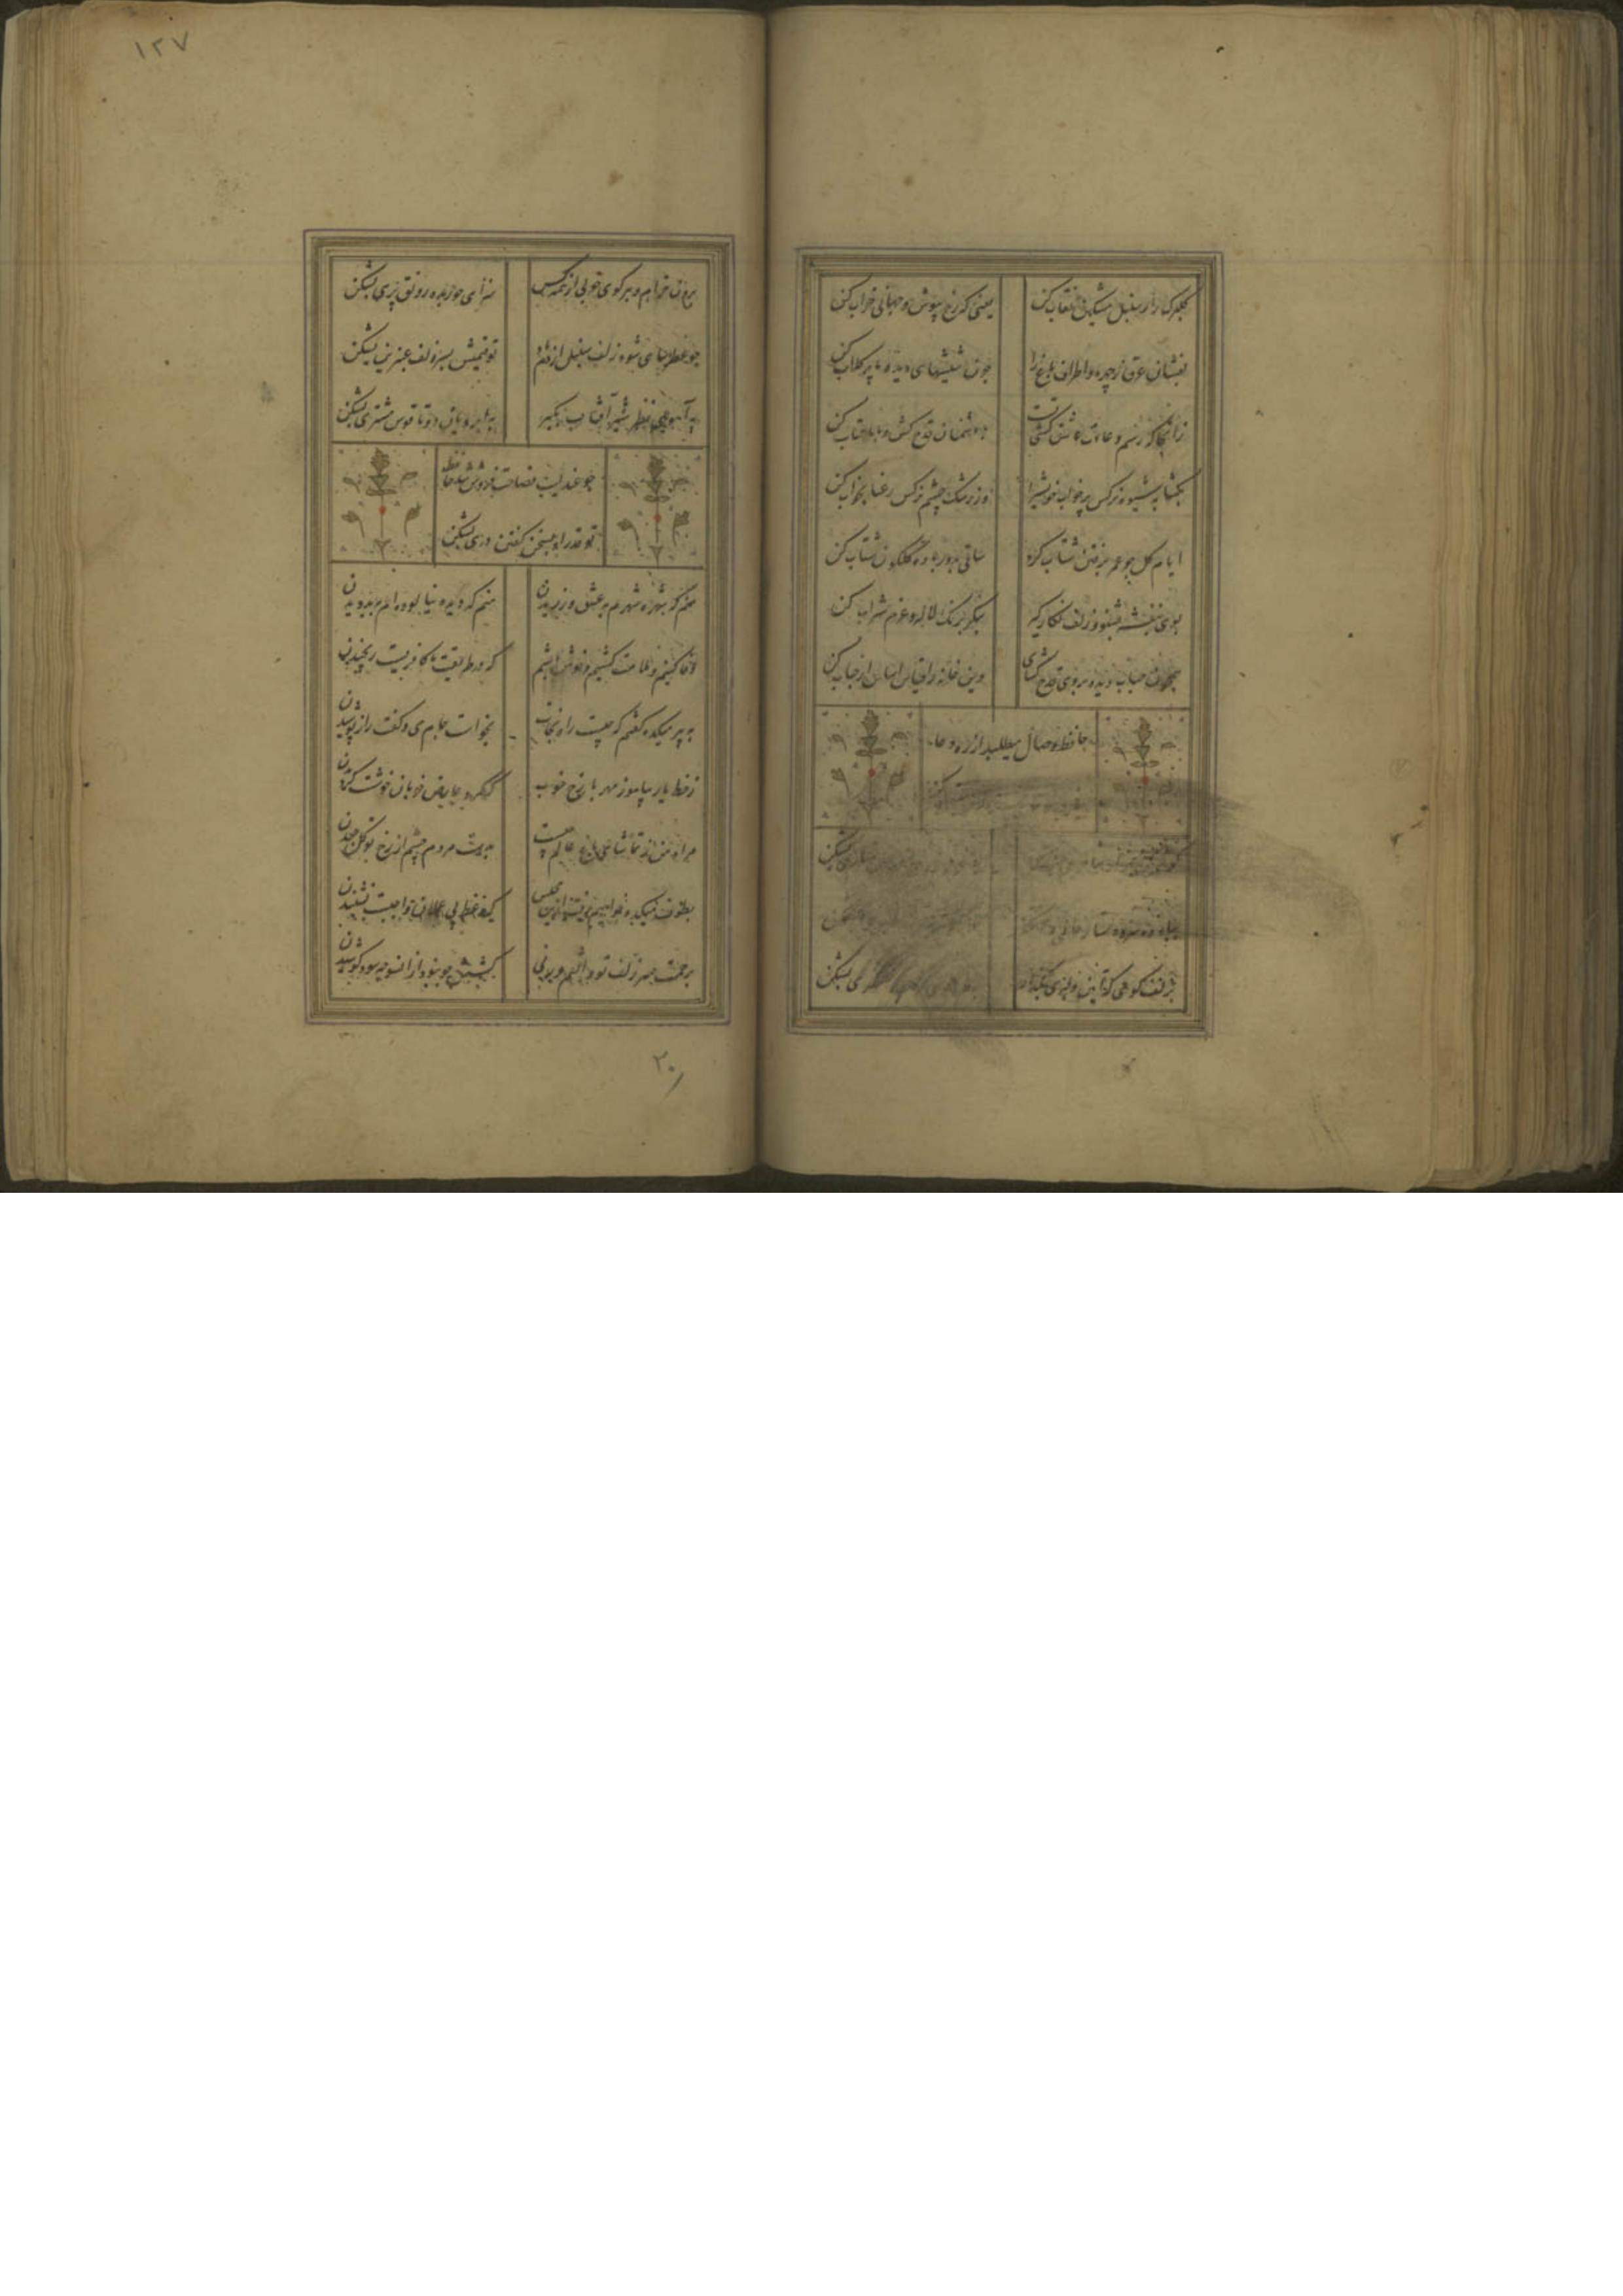 گلبرک را ز سنبل مشکین نقاب کن
یعنی که رخ بپوش و جهانی خراب کن
بفشان عرق ز چهره و اطراف باغ را
چون شیشهای دیده ما پر کلاب کن
زانجا که رسم و عادت عاشق کشی تست
با دشمنان قدح کش و با ما عتاب کن
بکشا بشیوه نرکس پر خواب خویش را
وز رشک چشم نرکس رعنا بخواب کن
ایام کل چو عمر برفتن شتاب کرد
ساقی بدور باده کلکون شتاب کن
بوی بنفشه بشنو و زلف نکار کیر
بنکر برنک لاله و عزم شراب کن
همچون حباب دیده بروی قدح کشای
وین خانه را قیاس اساس از حباب کن
حافظ وصال میطلبد از ره دعا
بزلف کوی که آیین دلبری بکذار
بشکن
۱۲۷
برون خرام و ببر کوی خوبی از همه کس
سزای حور بده رونق پری بشکن
چو عطرسای شود زلف سنبل از دم
تو قیمتش بسر زلف عنبرین بشکن
به آهوی نظر شیر آفتاب بکیر
به ابروان دوتا قوس مشتری بشکن
چو عندلیب فصاحت فروش شد حافظ
تو قدر او بسخن کفتن دری بشکن
منم که شهره شهرم به عشق ورزیدن
منم که دیده نیالوده‌ام ببد دیدن
وفا کنیم و ملامت کشیم و خوش باشیم
که در طریقت ما کافریست رنجیدن
به پیر میکده کفتم که چیست راه نجات
بخواست جام می و کفت راز پوشیدن
ز خط یار بیاموز مهر با رخ خوب
که کرد عارض خوبان خوشست کردیدن
مراد من ز تماشای باغ عالم چیست
بدست مردم چشم از رخ تو کل چیدن
مجلس
که وعظ بی عملان واجبست نشنیدن
برحمت سر زلف تو واثقم ورنی
کشش چو نبود از آنسو چه سود کوشیدن
۲۰